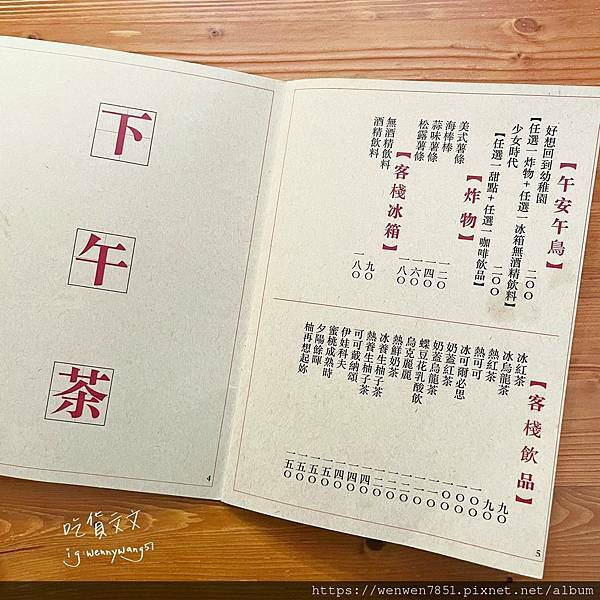 下午茶
4
吃貨文文
ig:wennywang51
【午安午鳥】
好想回到幼稚園 二〇〇
【任選一炸物+任選一冰箱無酒精飲料】
少女時代 二〇〇
【任選一甜點+任選一咖啡飲品】
【炸物】
美式薯條 一二〇
海棒棒 一四〇
蒜味薯條 一六〇
松露薯條 一八〇
【客棧冰箱】
無酒精飲料 九〇
酒精飲料 一八〇
【客棧飲品】
冰紅茶 九〇
冰烏龍茶 九〇
熱紅茶 一〇〇
熱可可 一〇〇
冰可爾必思 一〇〇
奶蓋紅茶 一二〇
奶蓋烏龍茶 一二〇
蝶豆花乳酸飲 一二〇
烏克麗麗 一二〇
熱鮮奶茶 一四〇
冰養生柚子茶 一四〇
熱養生柚子茶 一四〇
可可戴納頌 一五〇
伊娃科夫 一五〇
蜜桃成熟時 一五〇
夕陽餘暉 一五〇
柚再想起妳 一五〇
5
https://wenwen7851.pixnet.net/album